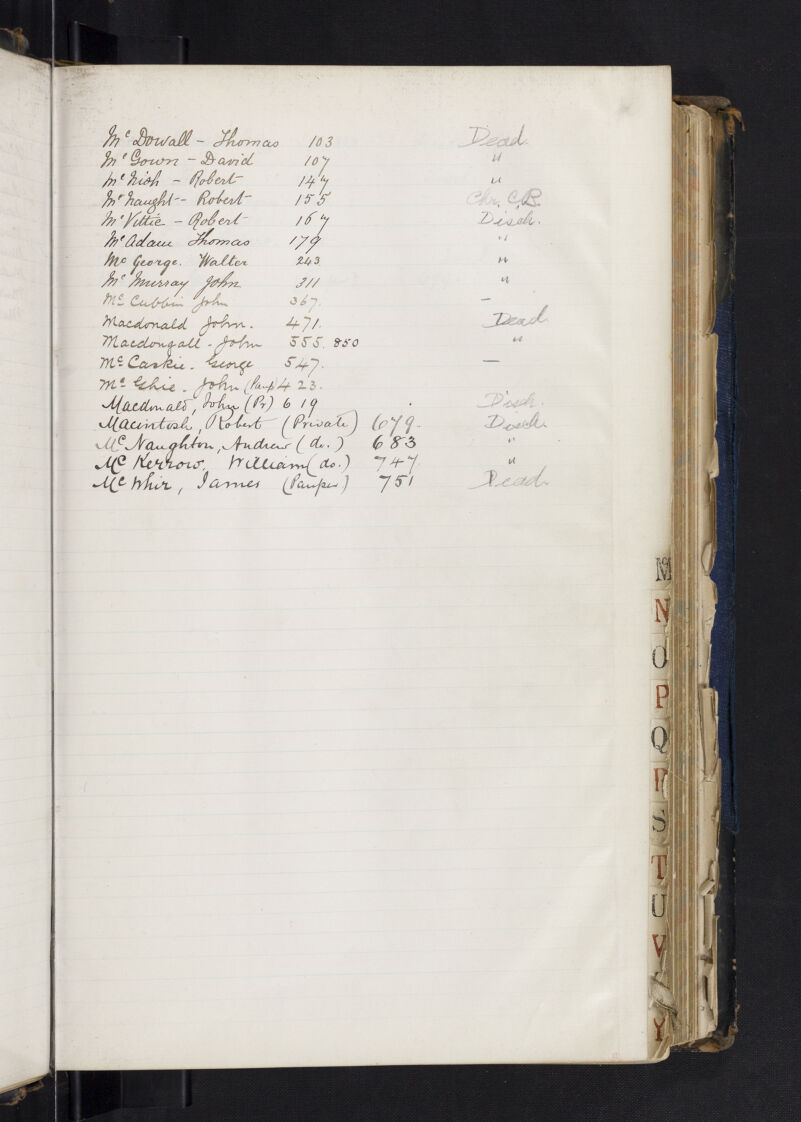 Mc Dowall - Thomas 103 Dead.
Mc Gown - David 107 "
Mc Nish - Robert 147 "
Mc Naught - Robert 155 Chr. C.B.
Mc Vittie - Robert 167 Disch.
Mc Adam Thomas 179 "
Mc George. Walter 243 "
Mc Murray John 311 "
Mc Cubbin John 367. -
Macdonald John. 471. Dead
Macdougall - John 555. 850 "
Mc Caskie. George 547. -
Mc Ghie. John (Paup) 423.
Macdonald, John (Pr) 619 Disch.
Macintosh, Robert (Private) 679. Disch.
Mc Naughton, Andrew (do.) 683 "
Mc Kerrow, William (do.) 747 "
Mc Whir, James (Pauper) 751 Dead.
M
N
O
P
Q
R
S
T
U
V
Y